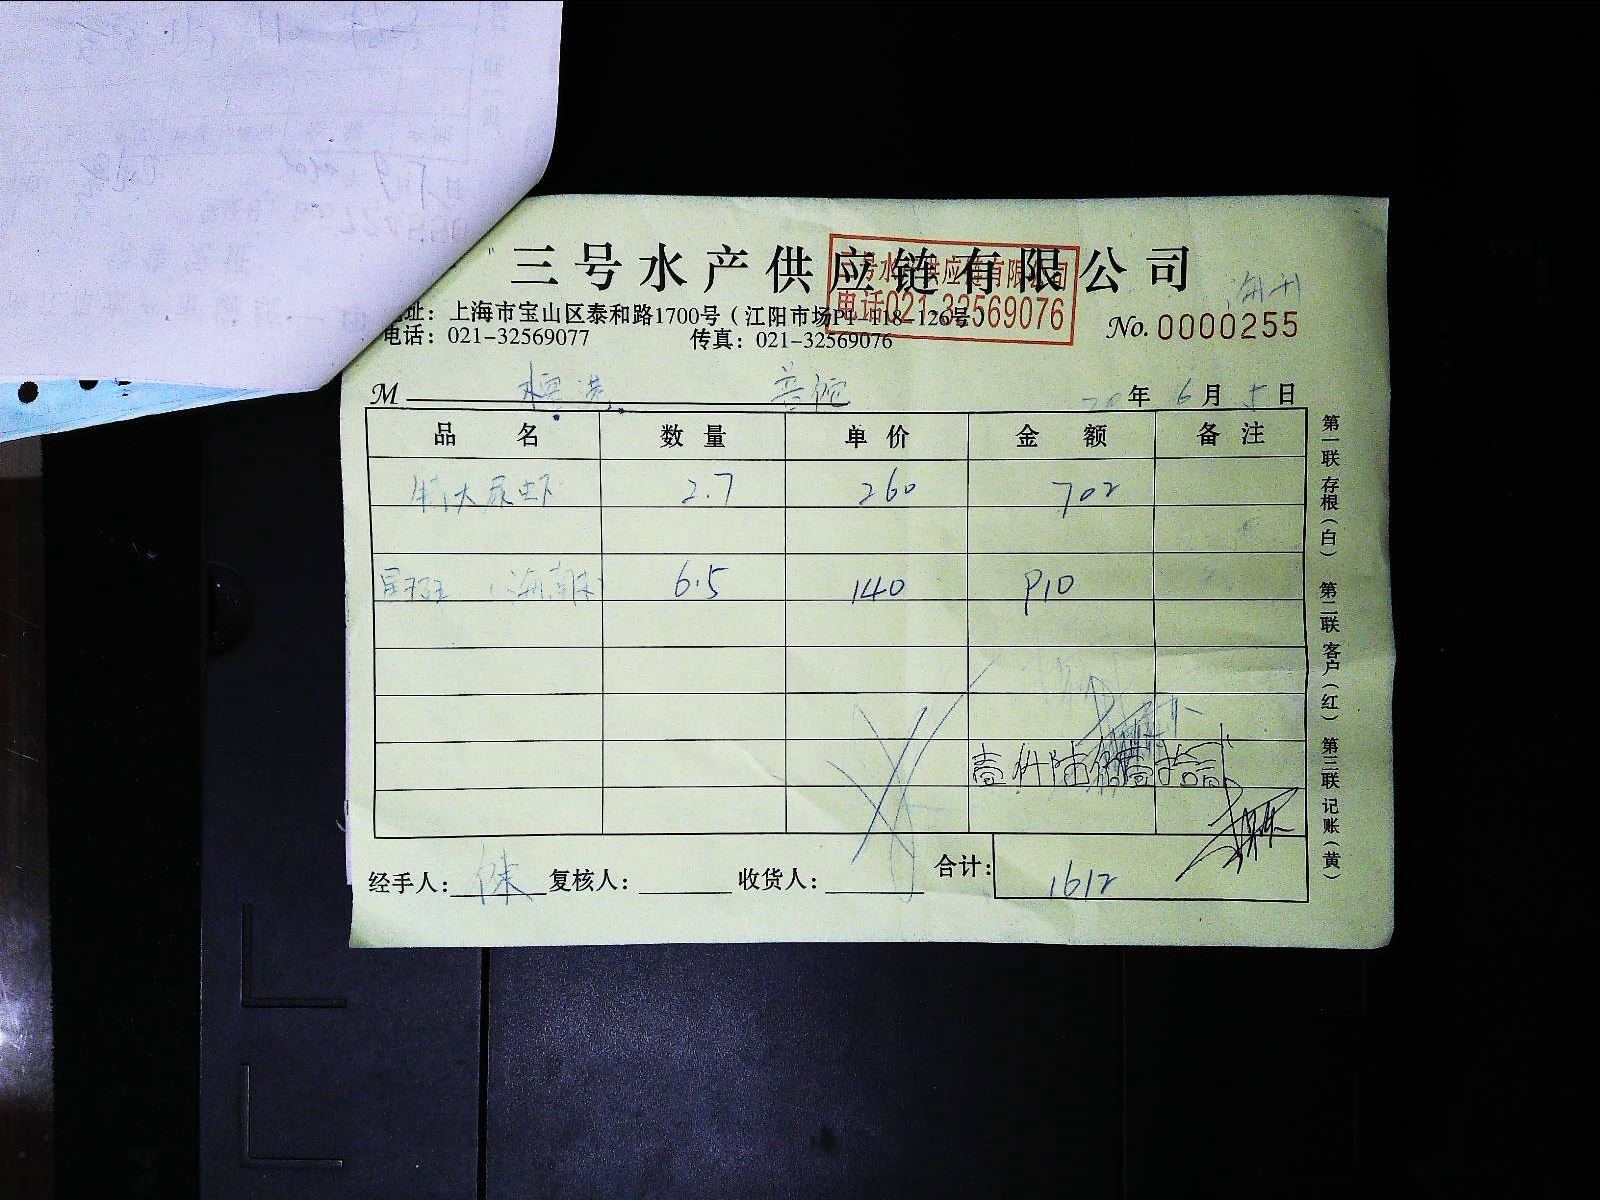 三号水产供应链有限公司
三号水产供应链有限公司
电话021-32569076
地址：上海市宝山区泰和路1700号（江阳市场P1-118-126号）
电话：021-32569077 传真：021-32569076
No. 0000255
M 普陀 20年6月5日
品名 数量 单价 金额 备注
大尿虾 2.7 260 702
(海南) 6.5 140 910
壹仟陆佰壹拾
经手人： 复核人： 收货人： 合计： 1612
第一联 存根（白） 第二联 客户（红） 第三联 记账（黄）